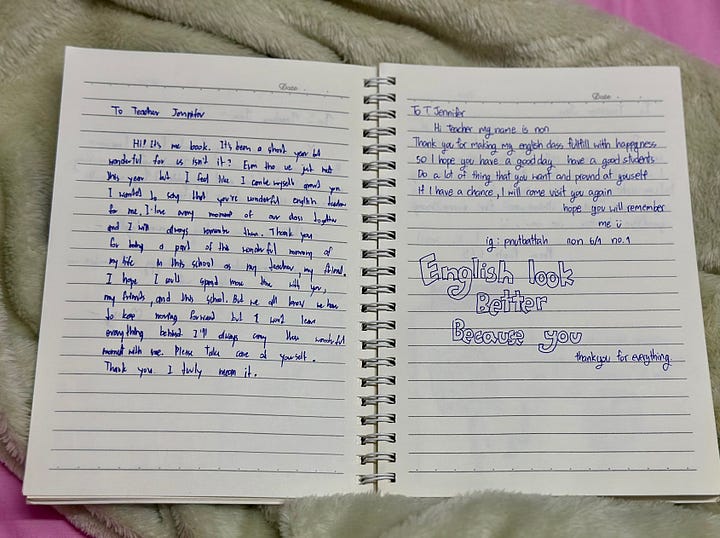 Date
To Teacher Jennifer
Hi! It's me book. It's been a short year but
wonderful for us isn't it? Even tho we just met
this year but I feel like I can be myself around you
I wanted to say that you're wonderful english teacher
for me, I love every moment of our class together
and I will always remember them. Thank you
for being a part of the wonderful memory of
my life in this school as my teacher, my friend.
I hope I could spend more time with you,
my friends, and this school. But we all know we have
to keep moving forward but I won't leave
everything behind I'll always carry these wonderful
moment with me. Please take care of yourself.
Thank you. I truly mean it.
Date
To T Jennifer
Hi teacher my name is non
Thank you for making my english class fullfill with happyness
So I hope you have a good day have a good students
Do a lot of thing that you want and pround at youself
If I have a chance, I will come visit you again
hope you will remember
me ü
ig: pnutbattah non 6/1 no.1
English look
Better
Because you
thankyou for everything.